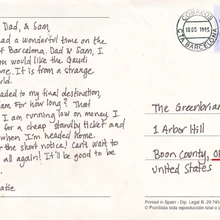 Dad, & Sam,
had a wonderful time on the
of Barcelona. Dad & Sam, I
would like the Gaudi
It is from a strange
world.
headed to my final destination,
am. For how long? That
I am running low on money. I
for a cheap standby ticket and
when I'm headed home.
the short notice! Can't wait to
all again! It'll be good to be
CORREOS
18.05 1995
BARCELONA
The Greenbriar
1 Arbor Hill
Boon County,
United States
Printed in Spain - Dip. Legal B. 29.743
© Prohibida toda reproducción total o